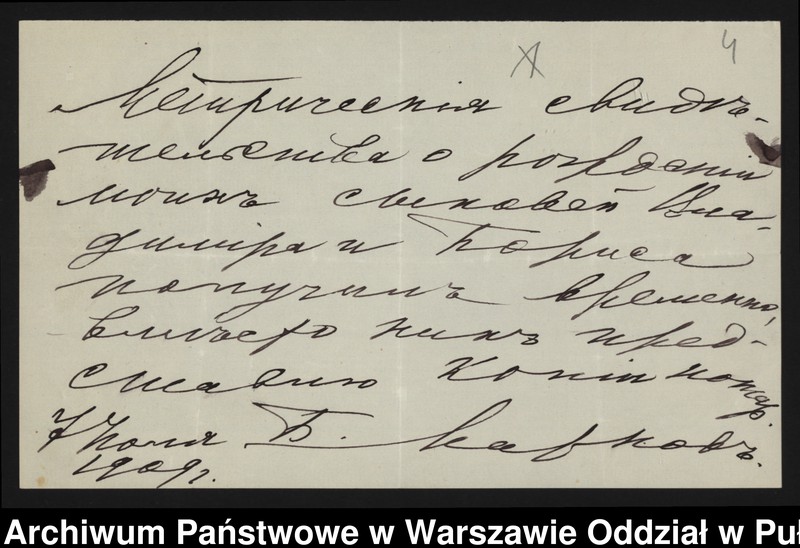 4
Метрическія свидѣ-
тельства о рожденіи
моихъ сыновей Вла-
диміра и Бориса
получилъ временно,
вмѣсто нихъ пред-
ставлю копіи нотар.
7 Іюля Б. Марковъ.
1909 г.
Archiwum Państwowe w Warszawie Oddział w Puł